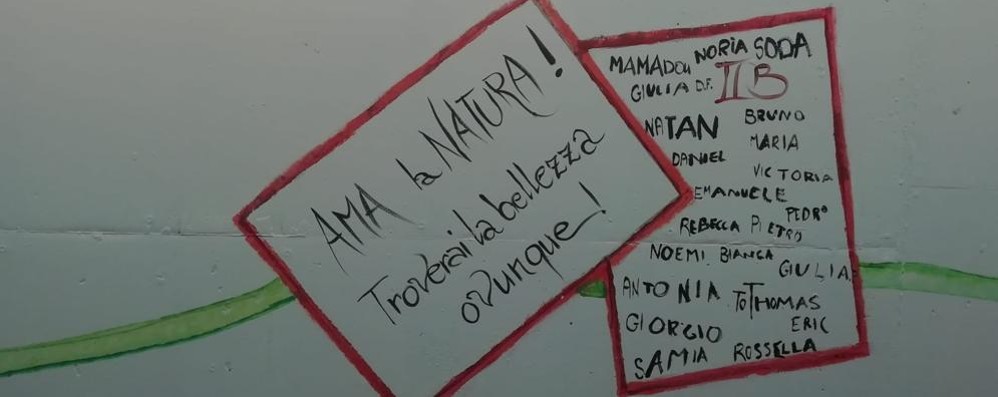 AMA la NATURA!
Troverai la bellezza
ovunque!
MAMADOU NORIA SODA
GIULIA D.F. IIB
NATAN BRUNO
MARIA
DANIEL
VICTORIA
EMANUELE
PEDRO
REBECCA PIETRO
NOEMI BIANCA
GIULIA
ANTONIA THOMAS
GIORGIO ERIC
SAMIA ROSSELLA